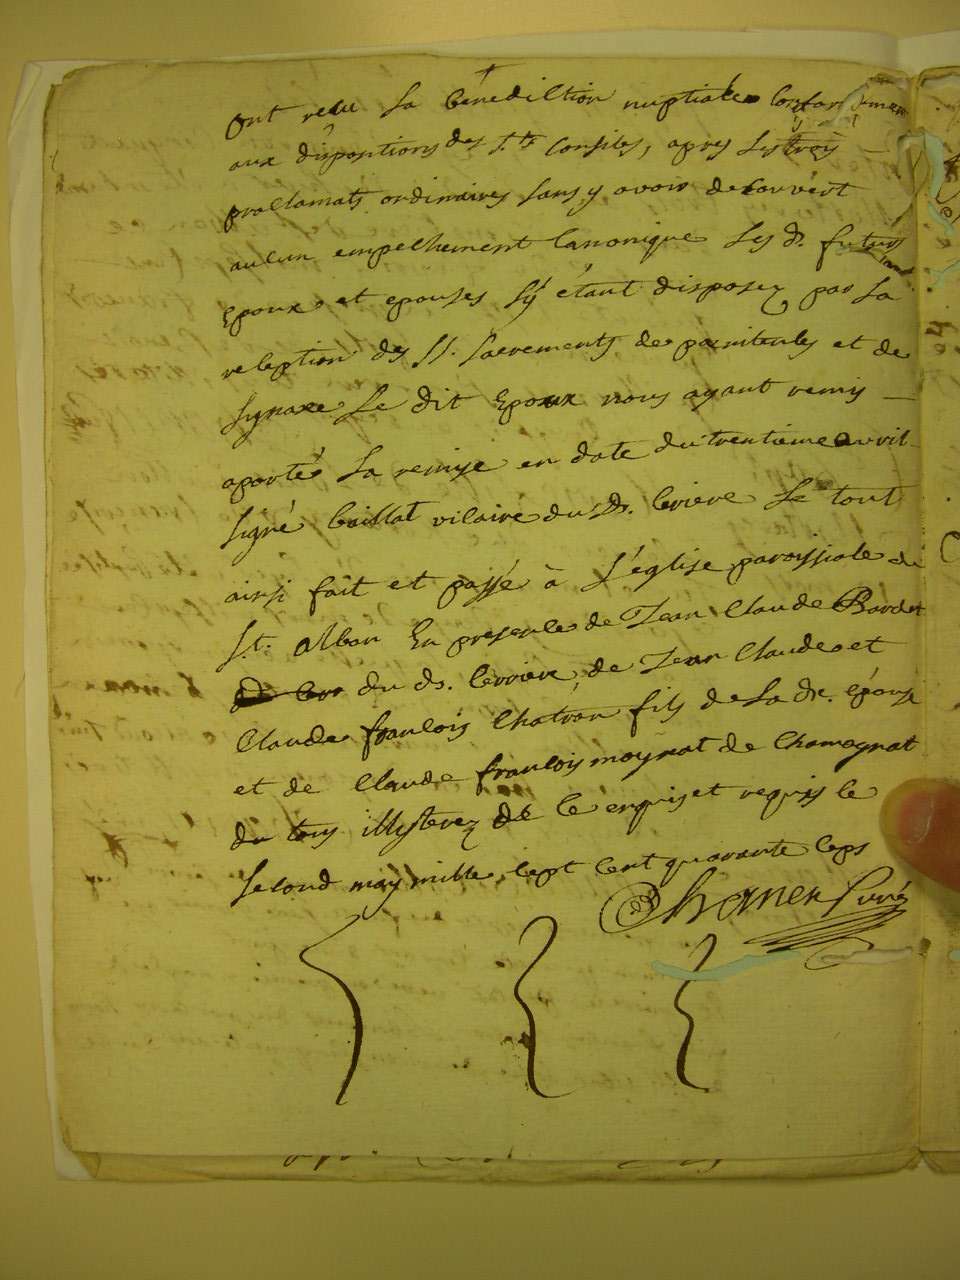 ont recu la bénédiction nuptiale conformemen
aux dispositions des Sts consiles, apres les trois
proclamats ordinaires sans y avoir decouvért
aucun empechement canonique les d. futurs
Epoux et epouses sÿ étant disposez par la
reception des SS. sacrements de pœnitences et de
Synaxe le dit Epoux nous ayant remis
aporté la remise en date du trentieme avvil
signé caillat vicaire du d. leriere le tout
ainsi fait et passé à l'église paroissiale de
St. alban En presence de Jean Claude Bardet
du d. leriere, de Jean Claude et
Claude francois Chatron fils de la de. épouse
et de Claude francois moynat de Chamagnat
du tous illisterez de ce enquis et requis le
second may mille sept cent quarante seps
curé